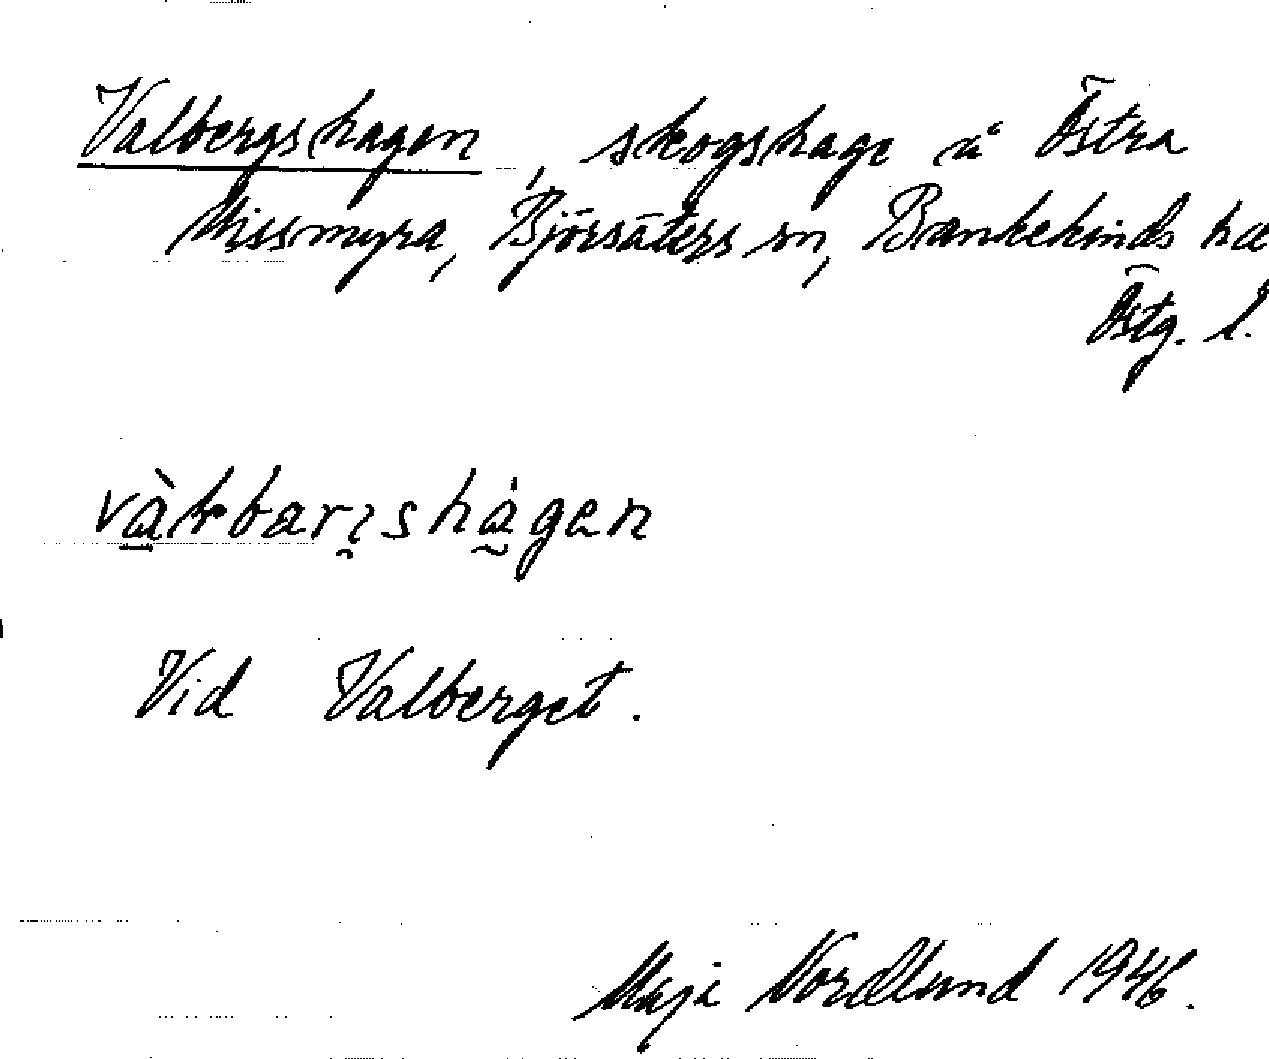 Valbergshagen, skogshage å Östra
Missmyra, Björsäters sn, Bankekinds hd
Östg. l.
Vid Valberget.
Maja Nordlund 1946.